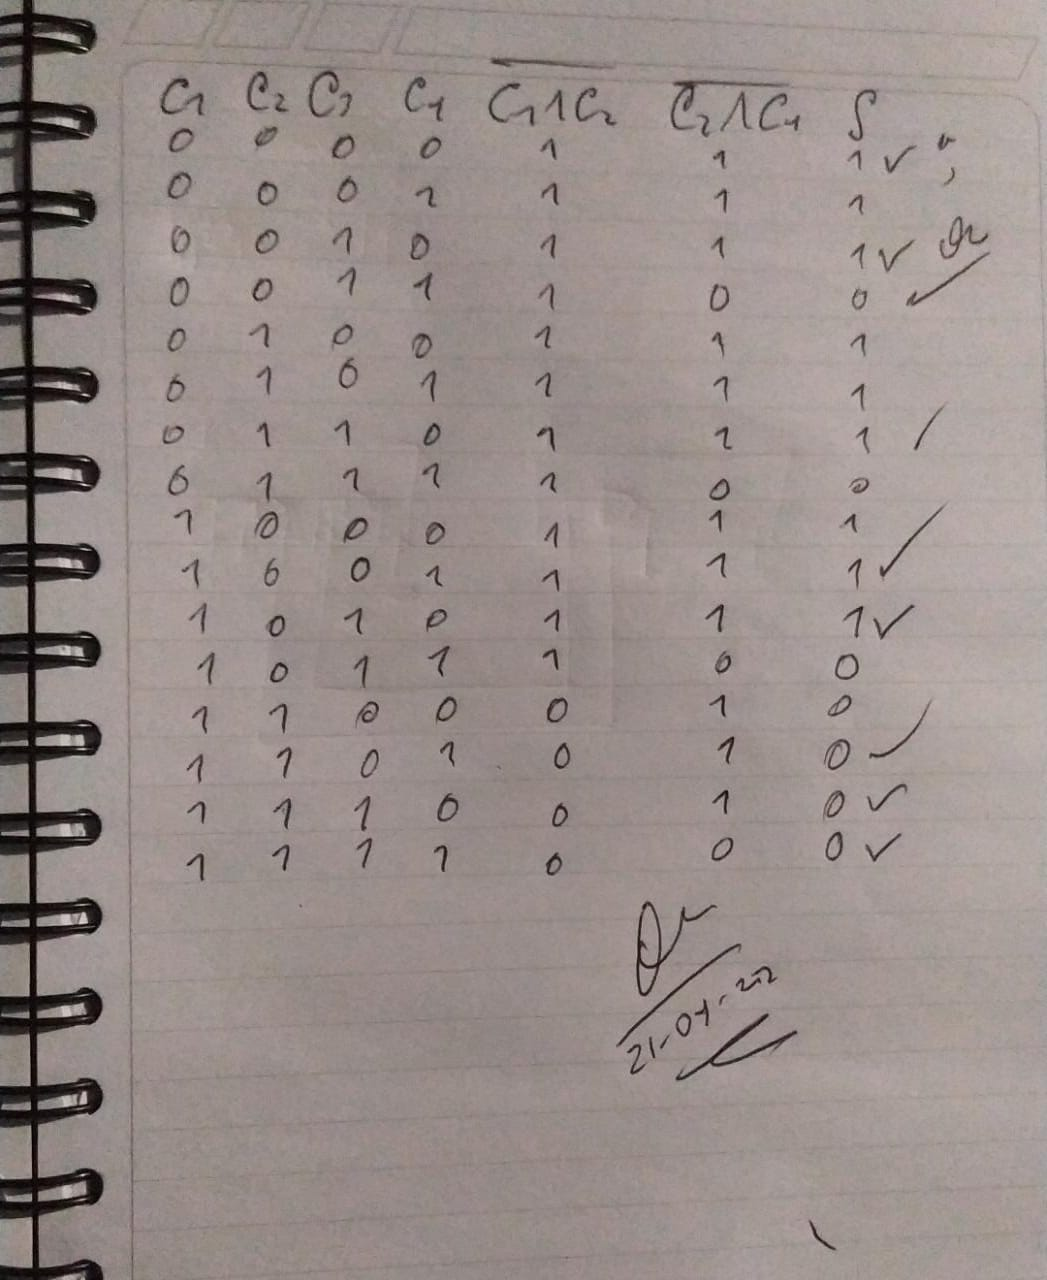 C1 C2 C3 C4 C1∧C2 C3∧C4 S
0 0 0 0 1 1 1 ✓
0 0 0 1 1 1 1
0 0 1 0 1 1 1 ✓
0 0 1 1 1 0 0 ✓
0 1 0 0 1 1 1
0 1 0 1 1 1 1
0 1 1 0 1 1 1 /
0 1 1 1 1 0 0
1 0 0 0 1 1 1
1 0 0 1 1 1 1 ✓
1 0 1 0 1 1 1 ✓
1 0 1 1 1 0 0
1 1 0 0 0 1 0
1 1 0 1 0 1 0 ✓
1 1 1 0 0 1 0 ✓
1 1 1 1 0 0 0 ✓